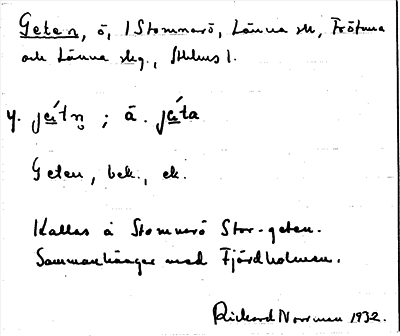 Geten, ö, i Stommarö, Länna sk, Frötuna
och Länna skg., Sthlms l.
y. jétn̥ ; ä. jéta
Geten, bek., ek.
Kallas å Stommarö Stor-geten.
Sammanhänger med Fjärdholmen.
Rickard Norrman 1932.